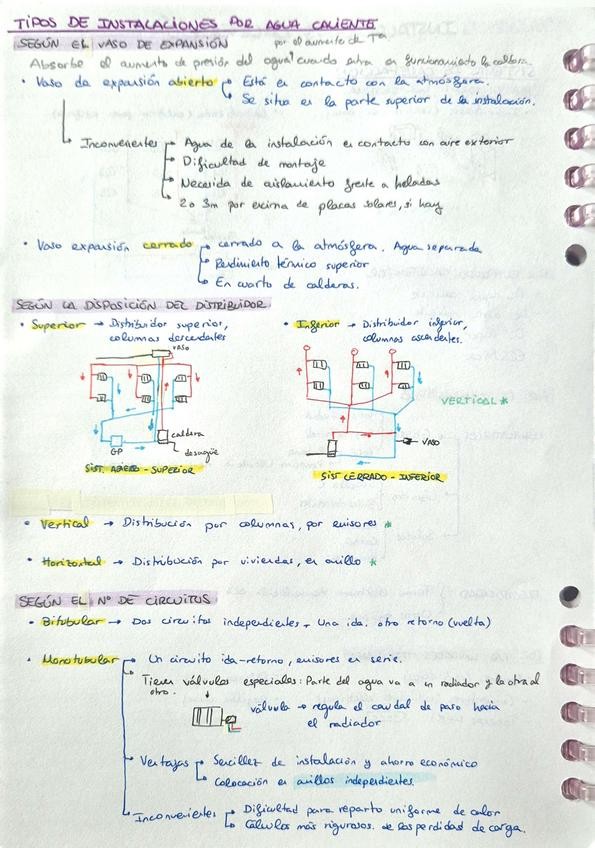 TIPOS DE INSTALACIONES POR AGUA CALIENTE
SEGÚN EL VASO DE EXPANSIÓN
por el aumento de Tª
Absorbe el aumento de presión del agua cuando entra en funcionamiento la caldera.
• Vaso de expansión abierto → Está en contacto con la atmósfera.
→ Se situa en la parte superior de la instalación.
→ Inconvenientes → Agua de la instalación en contacto con aire exterior
→ Dificultad de montaje
→ Necesida de aislamiento frente a heladas
→ 2 o 3m por encima de placas solares, si hay
• Vaso expansión cerrado → cerrado a la atmósfera. Agua separada
→ Rendimiento térmico superior
→ En cuarto de calderas.
SEGÚN LA DISPOSICIÓN DEL DISTRIBUIDOR.
• Superior → Distribuidor superior,
columnas descendentes
VASO
caldera
GP
desagüe
SIST. ABIERTO - SUPERIOR
• Inferior → Distribuidor inferior,
columnas ascendentes.
VERTICAL *
VASO
SIST CERRADO - INFERIOR
• Vertical → Distribución por columnas, por emisores *
• Horizontal → Distribución por viviendas, en anillo *
SEGÚN EL Nº DE CIRCUITOS
• Bitubular → Dos circuitos independientes. Una ida. otro retorno (vuelta)
• Monotubular → Un circuito ida-retorno, emisores en serie.
→ Tienen válvulas especiales: Parte del agua va a un radiador y la otra al
otro.
válvula → regula el caudal de paso hacia
el radiador
→ Ventajas → Sencillez de instalación y ahorro económico
→ Colocación en anillos independientes.
→ Inconvenientes → Dificultad para reparto uniforme de calor
→ Cálculos más rigurosos. de las perdidas de carga.